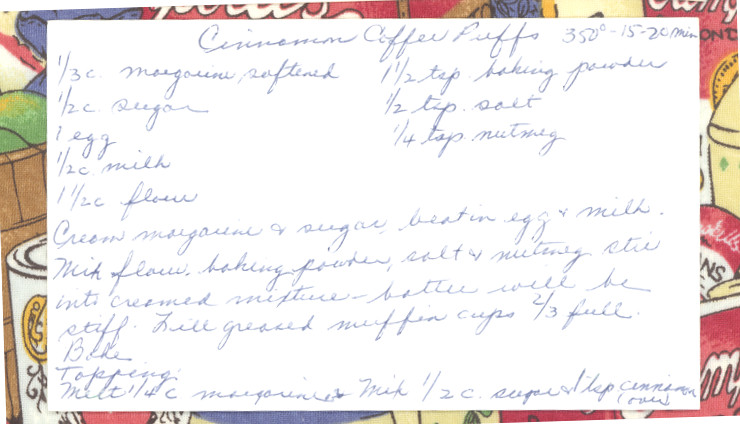 Cinnamon Coffee Puffs 350° - 15-20 min
1/3 c. margarine, softened 1 1/2 tsp. baking powder
1/2 c. sugar 1/2 tsp. salt
1 egg 1/4 tsp. nutmeg
1/2 c. milk
1 1/2 c flour
Cream margarine & sugar, beat in egg & milk.
Mix flour, baking powder, salt & nutmeg stir
into creamed mixture - batter will be
stiff. Fill greased muffin cups 2/3 full.
Bake
Topping:
Melt 1/4 c margarine & Mix 1/2 c. sugar & 1 tsp cinnamon
(over)